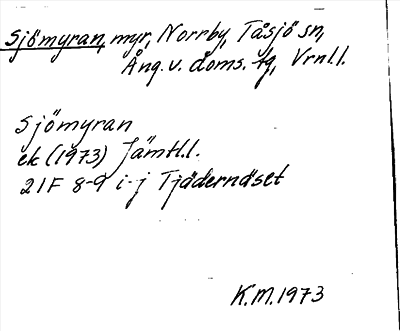 Sjömyran, myr, Norrby, Tåsjö sn,
Ång. v. doms. tg, Vrnll.
Sjömyran
ek (1973) Jämtl.l.
21F 8-9 i-j Tjädernäset
K.M. 1973